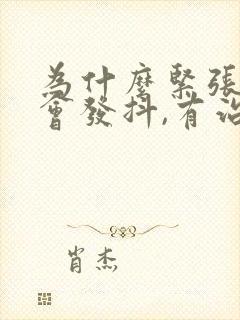 為什麼緊張
會發抖,有治
肖杰